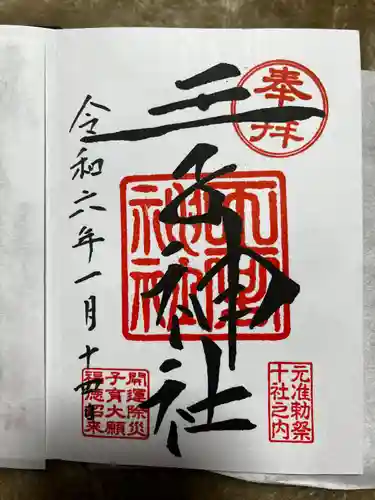 奉拝
元准勅祭
十社之内
王子神社
令和六年一月十四日
開運除災
子育大願
福徳招来